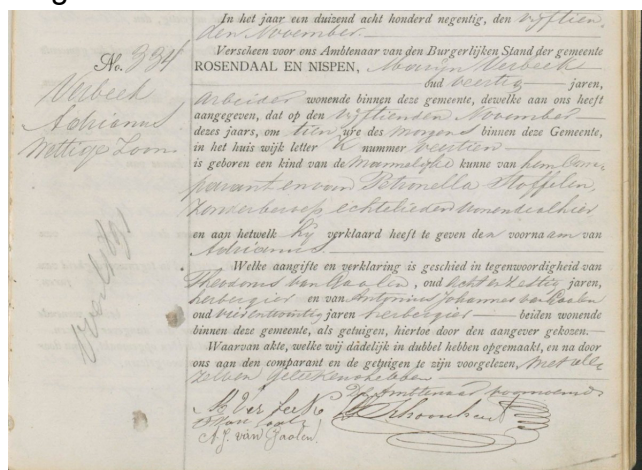 No. 334
Verbeek
Adrianus
Wettige Zoon
In het jaar een duizend acht honderd negentig, den vijftien
den November.
Verscheen voor ons Ambtenaar van den Burgerlijken Stand der gemeente
ROSENDAAL EN NISPEN, Marijn Verbeek
oud veertig jaren,
arbeider wonende binnen deze gemeente, dewelke aan ons heeft
aangegeven, dat op den vijftienden November
dezes jaars, om tien ure des morgens binnen deze Gemeente,
in het huis wijk letter K nummer veertien
is geboren een kind van de Mannelijke kunne van hem Com-
parant en van Petronella Stoffelen,
zonder beroep echtelieden wonende alhier
en aan hetwelk hij verklaard heeft te geven den voornaam van
Adrianus.
Welke aangifte en verklaring is geschied in tegenwoordigheid van
Theodorus van Gaalen, oud acht en zestig jaren,
herbergier en van Antonius Johannes van Gaalen
oud vier en twintig jaren herbergier beiden wonende
binnen deze gemeente, als getuigen, hiertoe door den aangever gekozen.
Waarvan akte, welke wij dadelijk in dubbel hebben opgemaakt, en na door
ons aan den comparant en de getuigen te zijn voorgelezen, met alle
zelven geteekend hebben
De Ambtenaar voornoemd
M Verbeek
A. J. van Gaalen